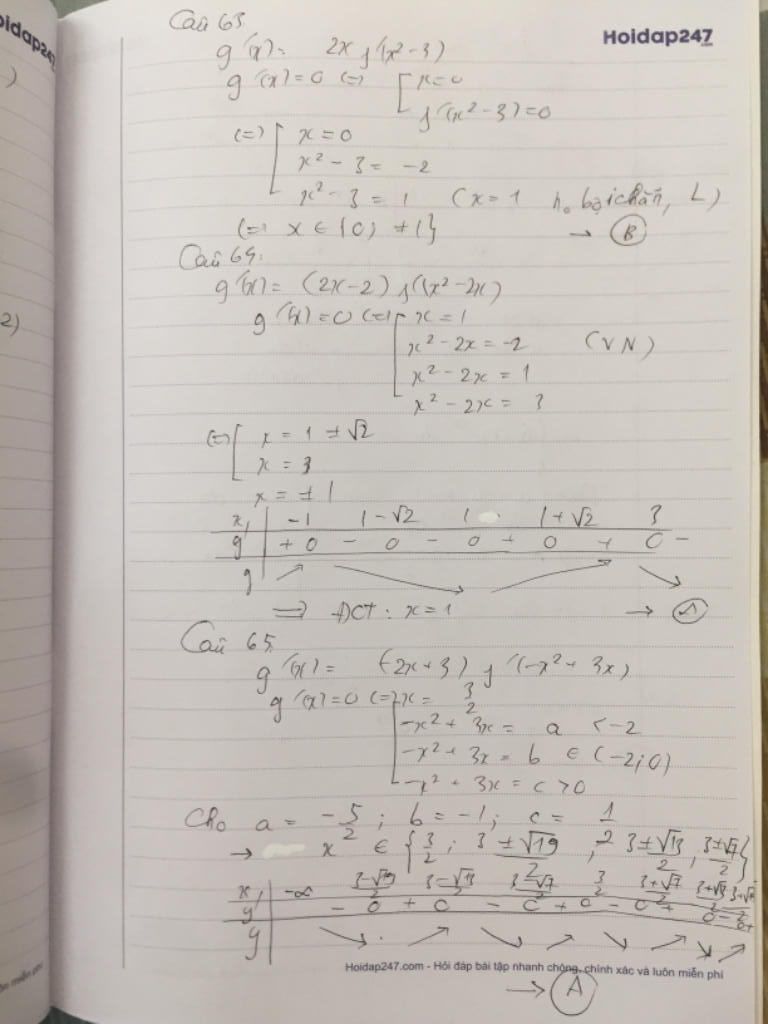 oidap247
Hoidap247
)
2)
Câu 63.
g'(x) = 2x f'(x² - 3)
g'(x) = 0 (=) [ x = 0
f'(x² - 3) = 0
(=) [ x = 0
x² - 3 = -2
x² - 3 = 1 (x = 1 n₀ bội chẵn, L)
(=) x ∈ {0; ±1} → (B)
Câu 64:
g'(x) = (2x - 2) f'(x² - 2x)
g'(x) = 0 (=) [ x = 1
x² - 2x = -2 (VN)
x² - 2x = 1
x² - 2x = 3
(=) [ x = 1 ± √2
x = 3
x = ± 1
x | -1 1-√2 1 1+√2 3
g' | + 0 - 0 - 0 + 0 + 0 -
g | ↗ ↘ ↗ ↘
=> ĐCT: x = 1 → (A)
Câu 65.
g'(x) = (-2x + 3) f'(-x² + 3x)
g'(x) = 0 (=) [ x = 3/2
-x² + 3x = a < -2
-x² + 3x = b ∈ (-2; 0)
-x² + 3x = c > 0
Cho a = -5/2; b = -1; c = 1
→ x ∈ { 3/2; 3±√19/2, 3±√13/2, 3±√7/2 }
x | -∞ 3-√19/2 3-√13/2 3-√7/2 3/2 3+√7/2
y' | - 0 + 0 - 0 + 0 - 0 + 0 - 0 +
y | ↘ ↗ ↘ ↗ ↘ ↗ ↘ ↗
Hoidap247.com - Hỏi đáp bài tập nhanh chóng, chính xác và luôn miễn phí
→ (A)